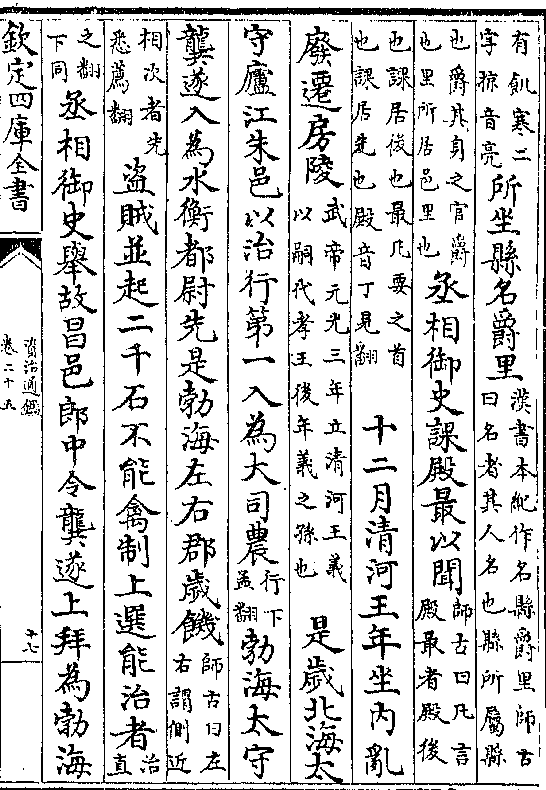 有飢寒二
字掠音亮
所坐縣名爵里
漢書本紀作名縣爵里師古
曰名者其人名也縣所屬縣
也爵其身之官爵
也里所居邑里也
丞相御史課殿最以聞
師古曰凡言
殿最者殿後
也課居後也最凡要之首
也課居先也殿音丁見翻
十二月清河王年坐内亂
廢遷房陵
武帝元光三年立清河王義
以嗣代孝王後年義之孫也
是歲北海太
守廬江朱邑以治行第一入為大司農
行下
孟翻
勃海太守
龔遂入為水衡都尉先是勃海左右郡歲饑
師古曰左
右謂側近
相次者先
悉薦翻
盜賊並起二千石不能禽制上選能治者
治
直
之翻
下同
丞相御史舉故昌邑郎中令龔遂上拜為勃海
欽定四庫全書
資治通鑑
卷二十五
十七